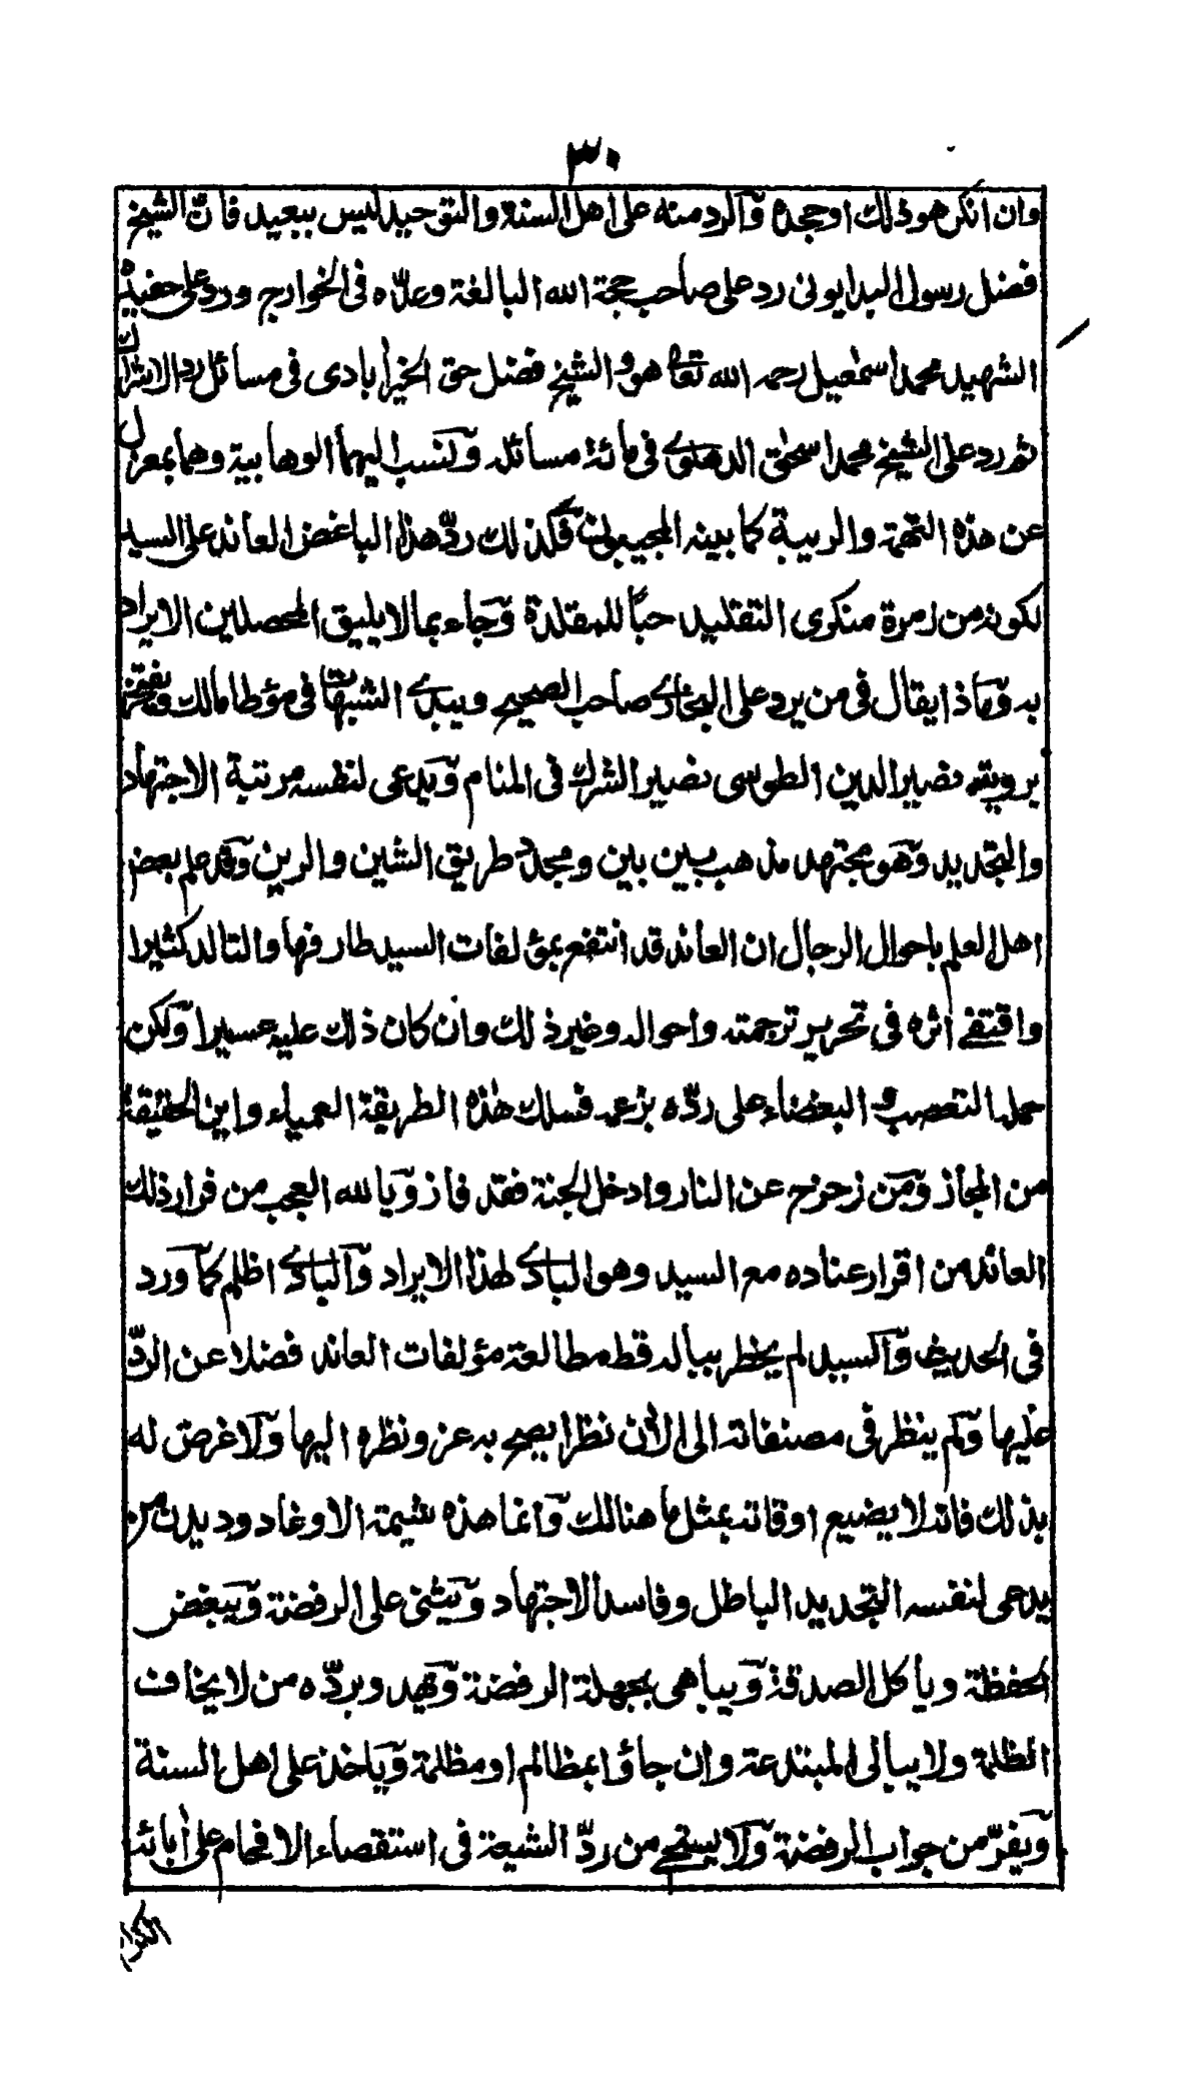 ٣٠
وان انكر هو ذلك اوجحده والرد منه على اهل السنة والتوحيد ليس ببعيد فان الشيخ
فضل رسول البدايونى رد على صاحب حجة الله البالغة وعدّه فى الخوارج ورد على حفيده
الشهيد محمد اسمعيل رحمه الله تعالى هو والشيخ فضل حق الخيرأبادى فى مسائل رد الاشراك
ثم رد على الشيخ محمد اسحق الدهلوى فى مائة مسائله ونسب اليهما الوهابية وهما بمعزل
عن هذه التهمة والريبة كما بينه المجيبون فكذلك ردّ هذا الباغض العاند على السيد
لكونه من زمرة منكرى التقليد حبًا للمقلدة وجاء بما لا يليق المحصلين الايراد
به وماذا يقال فى من يرد على البخارى صاحب الصحيح ويبدى الشبهات فى مؤطا مالك ويفتخر
برويته نصير الدين الطوسى نصير الشرك فى المنام ويدعى لنفسه مرتبة الاجتهاد
والتجديد وهو مجتهد مذهب بين بين ومجدد طريق الشين والرين وقد علم بعض
اهل العلم باحوال الرجال ان العاند قد انتفع بمؤلفات السيد طارفها والتالد كثيرا
واقتفى اثره فى تحرير ترجمته واحواله وغير ذلك وان كان ذلك عليه عسيرا ولكن
حمله التعصب والبغضاء على ردّه بزعمه فسلك هذه الطريقة العمياء واين الحقيقة
من المجاز ومن زحزح عن النار وادخل الجنة فقد فاز ويا لله العجب من فرار ذلك
العاند من اقرار عناده مع السيد وهو البادى لهذا الايراد والبادى اظلم كما ورد
فى الحديث والسيد لم يخطر بباله قط مطالعة مؤلفات العاند فضلا عن الردّ
عليها ولم ينظر فى مصنفاته الى الأن نظرا يصح به عزو نظره اليها ولا غرض له
بذلك فانه لا يضيع اوقاته بمثل ما هنالك وانما هذه شيمة الاوغاد وديدن من
يدعى لنفسه التجديد الباطل وفاسد الاجتهاد ويثنى على الرفضة ويبغض
الحفظة ويأكل الصدقة ويباهى بجهلة الرفضة وبردّه من لا يخاف
الظلمة ولا يبالى المبتدعة وان جاؤا بمظالم او مظلمة وياخذ على اهل السنة
ويفرّ من جواب الرفضة ولا يستحى من ردّ الشيعة فى استقصاء الافحام على أبائه
الكرام